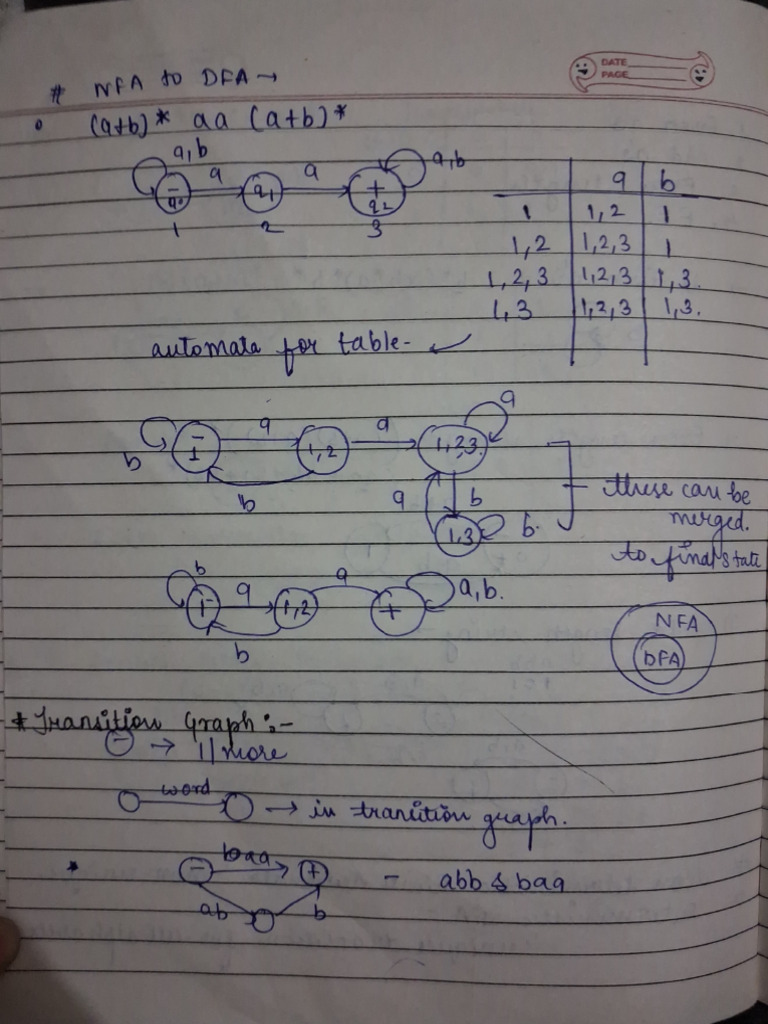 DATE
PAGE
# NFA to DFA →
(a+b)* aa (a+b)*
a,b a a a,b
- q0 q1 + q2
1 2 3
a b
1 1,2 1
1,2 1,2,3 1
1,2,3 1,2,3 1,3.
1,3 1,2,3 1,3.
automata for table-
b - 1 a 1,2 a 1,2,3. a
b
a b
1,3 b.
these can be
merged.
to final state
b
1- a 1,2 a + a,b.
b
NFA
DFA
* Transition Graph :-
- → 1/more
word → in transition graph.
* - baa + - abb & baa
ab b